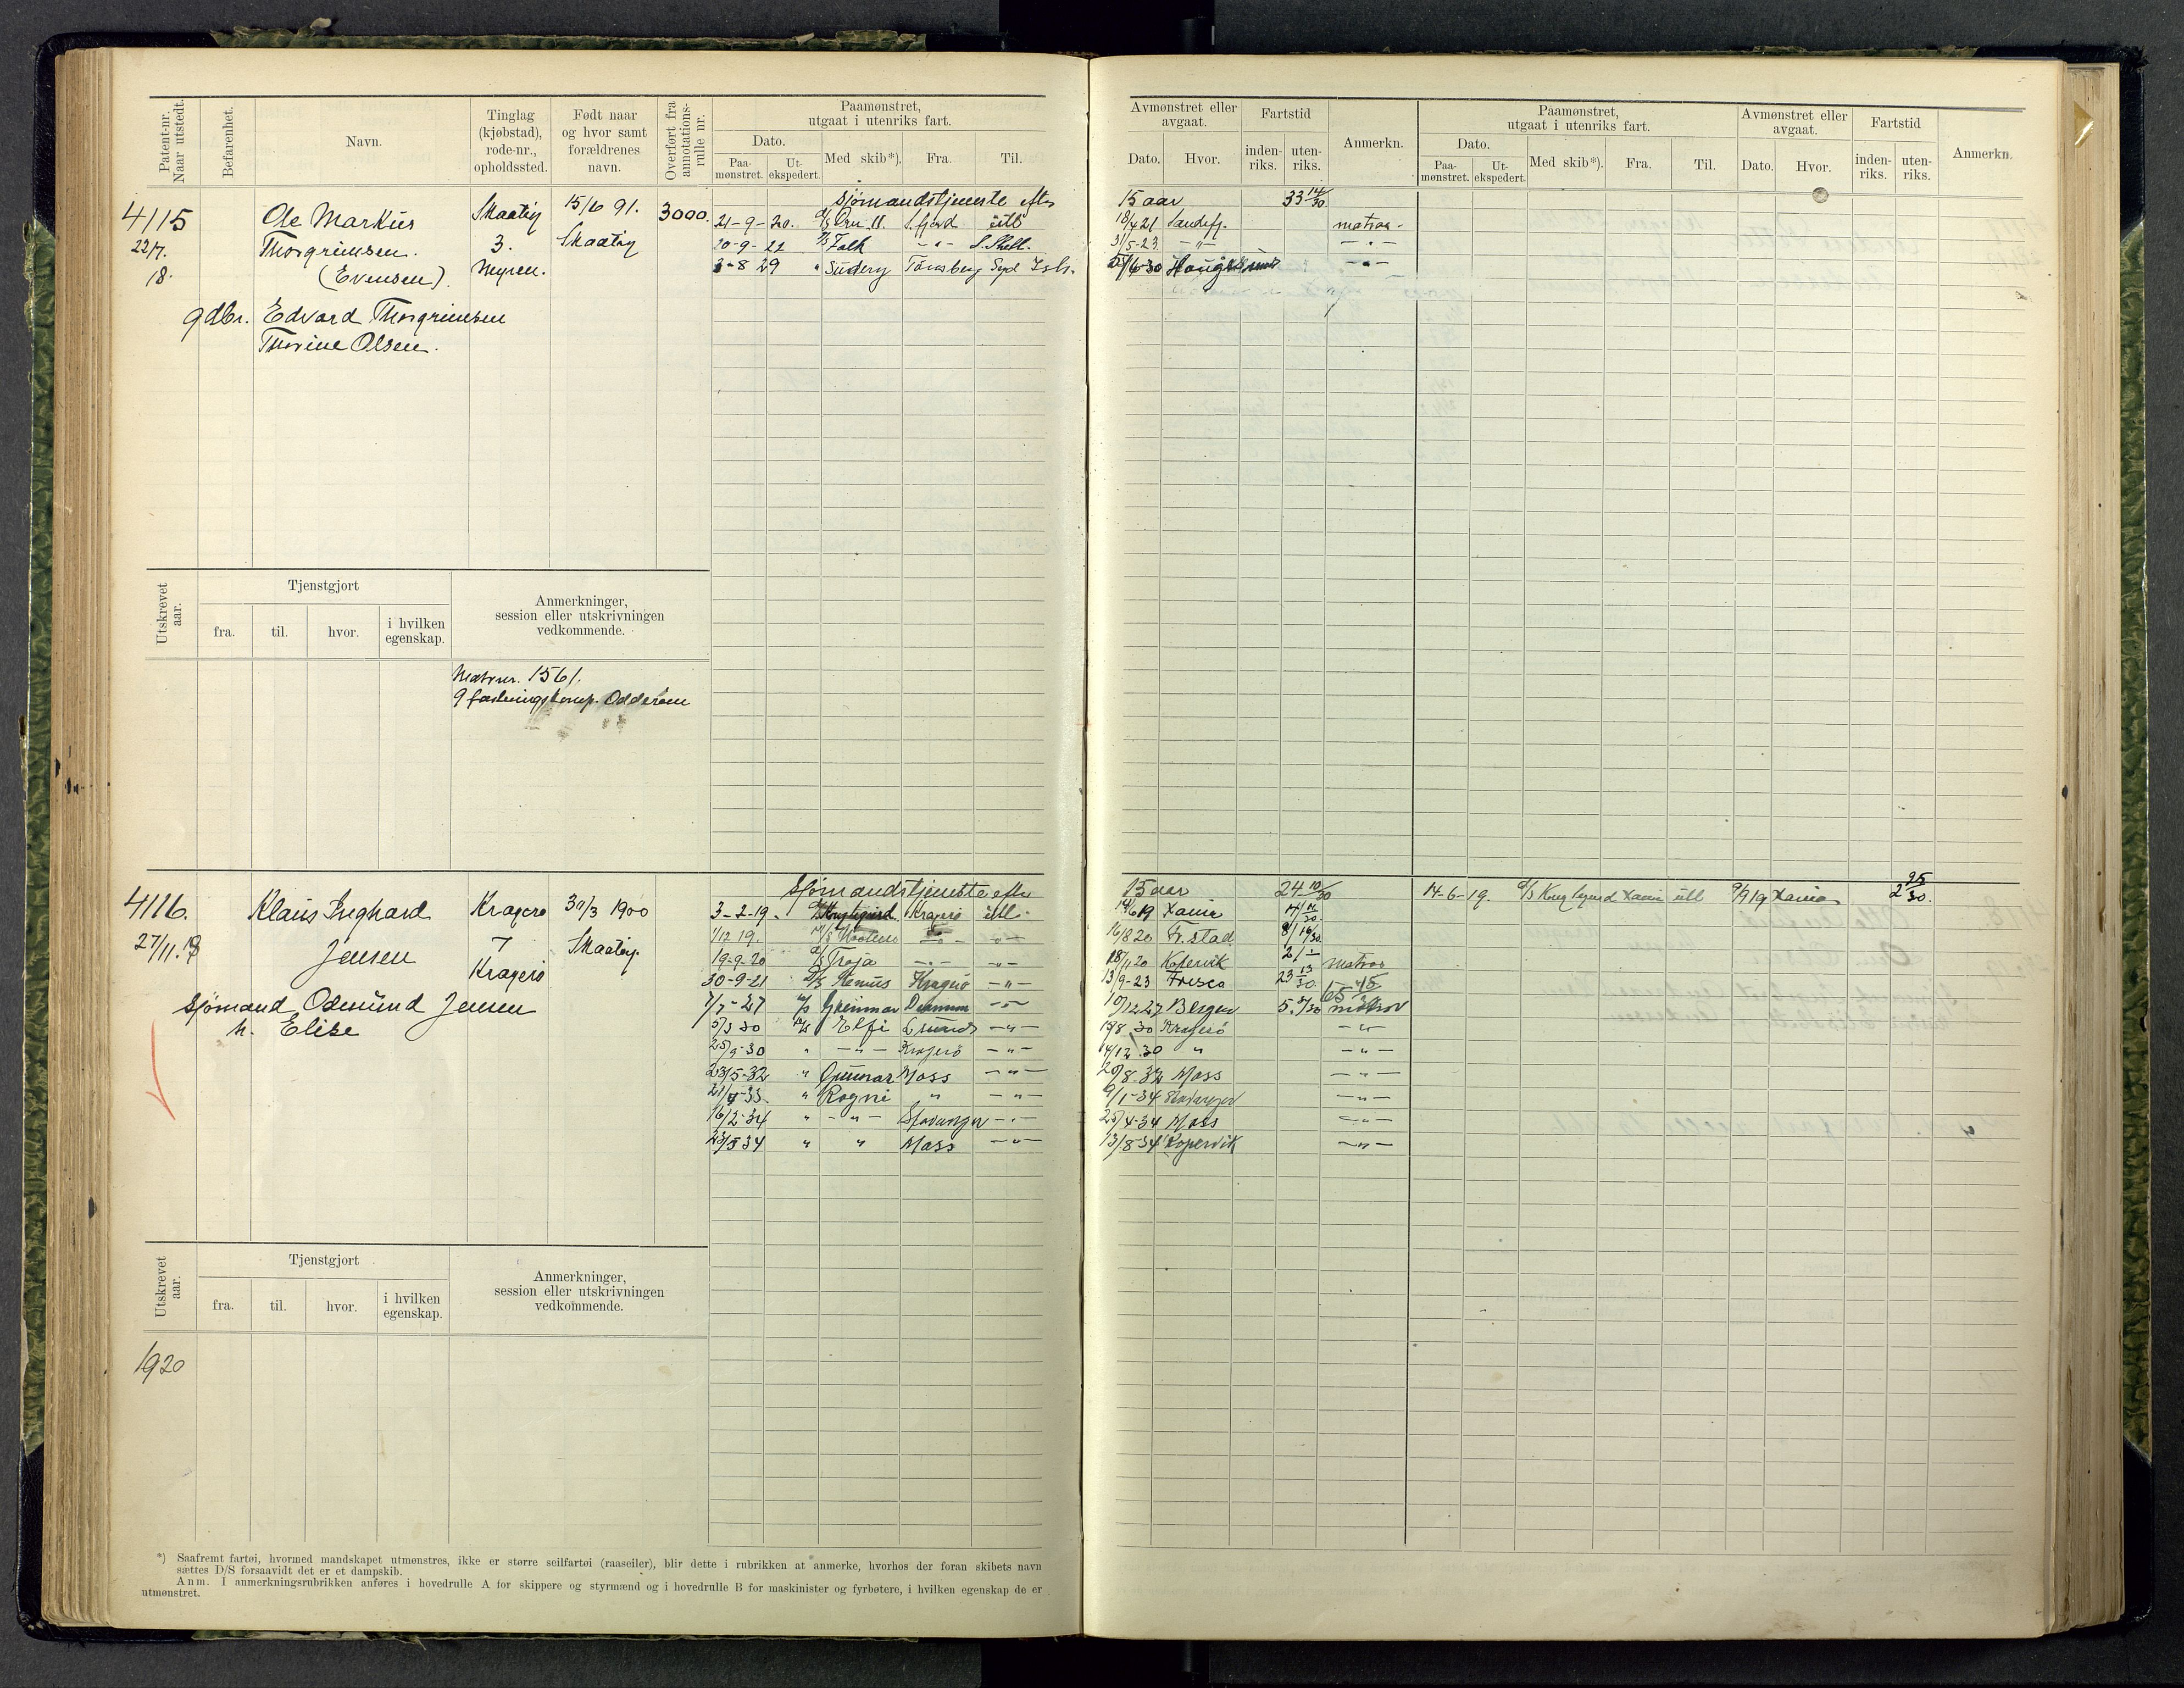 Patent-nr. Naar utstedt.
Befarenhet.
Navn.
Tinglag (kjøbstad), rode-nr., opholdssted.
Født naar og hvor samt forældrenes navn.
Overført fra annotations-rulle nr.
Paamønstret, utgaat i utenriks fart.
Dato.
Paa-mønstret.
Ut-ekspedert.
Med skib*).
Fra.
Til.
Avmønstret eller avgaat.
Dato.
Hvor.
Fartstid
inden-riks.
uten-riks.
Anmerkn.
Paamønstret, utgaat i utenriks fart.
Dato.
Paa-mønstret.
Ut-ekspedert.
Med skib*).
Fra.
Til.
Avmønstret eller avgaat.
Dato.
Hvor.
Fartstid
inden-riks.
uten-riks.
Anmerkn.
4115
22/7.
18.
Ole Markus
Thorgrimsen.
(Evensen).
gdbr. Edvard Thorgrimsen
Thorine Olsen.
Skaatøy
3.
Myren.
15/6 91.
Skaatøy
3000.
Sjømandstjeneste efter 15 aar 33 14/30
21-9-20. D/S Ørn II. S.fjord utl 18/4 21 Sandefj. matros
20-9-22 D/S Falk -"- S. Shetl. 31/5-23 -"- -"-
3-8 29 " Suderøy Tønsberg Syd Ish. /6-30 Haugesund -"-
Utskrevet aar.
Tjenstgjort
fra.
til.
hvor.
i hvilken egenskap.
Anmerkninger, session eller utskrivningen vedkommende.
Matrnr. 1561.
9 fæstningskomp. Odderøen
4116.
27/11.18
Klaus Inghard
Jensen
Sjømand Osmund Jensen
h. Elise
Kragerø
7
Kragerø
30/3 1900
Skaatøy.
Sjømandstjeneste efter 15 aar 24 10/30
3-2-19. D/S Kong Sigurd Kragerø utl. 14/6 19 Xania
1/12 19. -"- -"- 16/8 20 Fr.stad
19-9-20 D/S Troja -"- -"- 18/11 20 Kopervik matros
30-9-21 D/S Remus Kragerø -"- 13/9-23 Frisco 23 13/30
7/7-27 Grammen -"- 10/12 27 Bergen matros
5/3 30 Elfi -"- 19/8 30 Kragerø -"-
25/9-30 " -"- Kragerø -"- 14/12.30 " -"-
23/5-32 " Gunnar Moss -"- 20/8-32 Moss -"-
21/4-33. " Rogni " -"- 9/1-34 Stavanger -"-
16/2-34 " -"- Stavanger -"- 25/4-34 Moss -"-
23/5 34 " " Moss -"- 13/8-34 Kopervik -"-
14-6-19. D/S Kong Sigurd Xania utl 9/9 19 Xania 2 25/30.
Utskrevet aar.
Tjenstgjort
fra.
til.
hvor.
i hvilken egenskap.
Anmerkninger, session eller utskrivningen vedkommende.
1920
*) Saafremt fartøi, hvormed mandskapet utmønstres, ikke er større seilfartøi (raaseiler), blir dette i rubrikken at anmerke, hvorhos der foran skibets navn
sættes D/S forsaavidt det er et dampskib.
Anm. I anmerkningsrubrikken anføres i hovedrulle A for skippere og styrmænd og i hovedrulle B for maskinister og fyrbøtere, i hvilken egenskap de er
utmønstret.